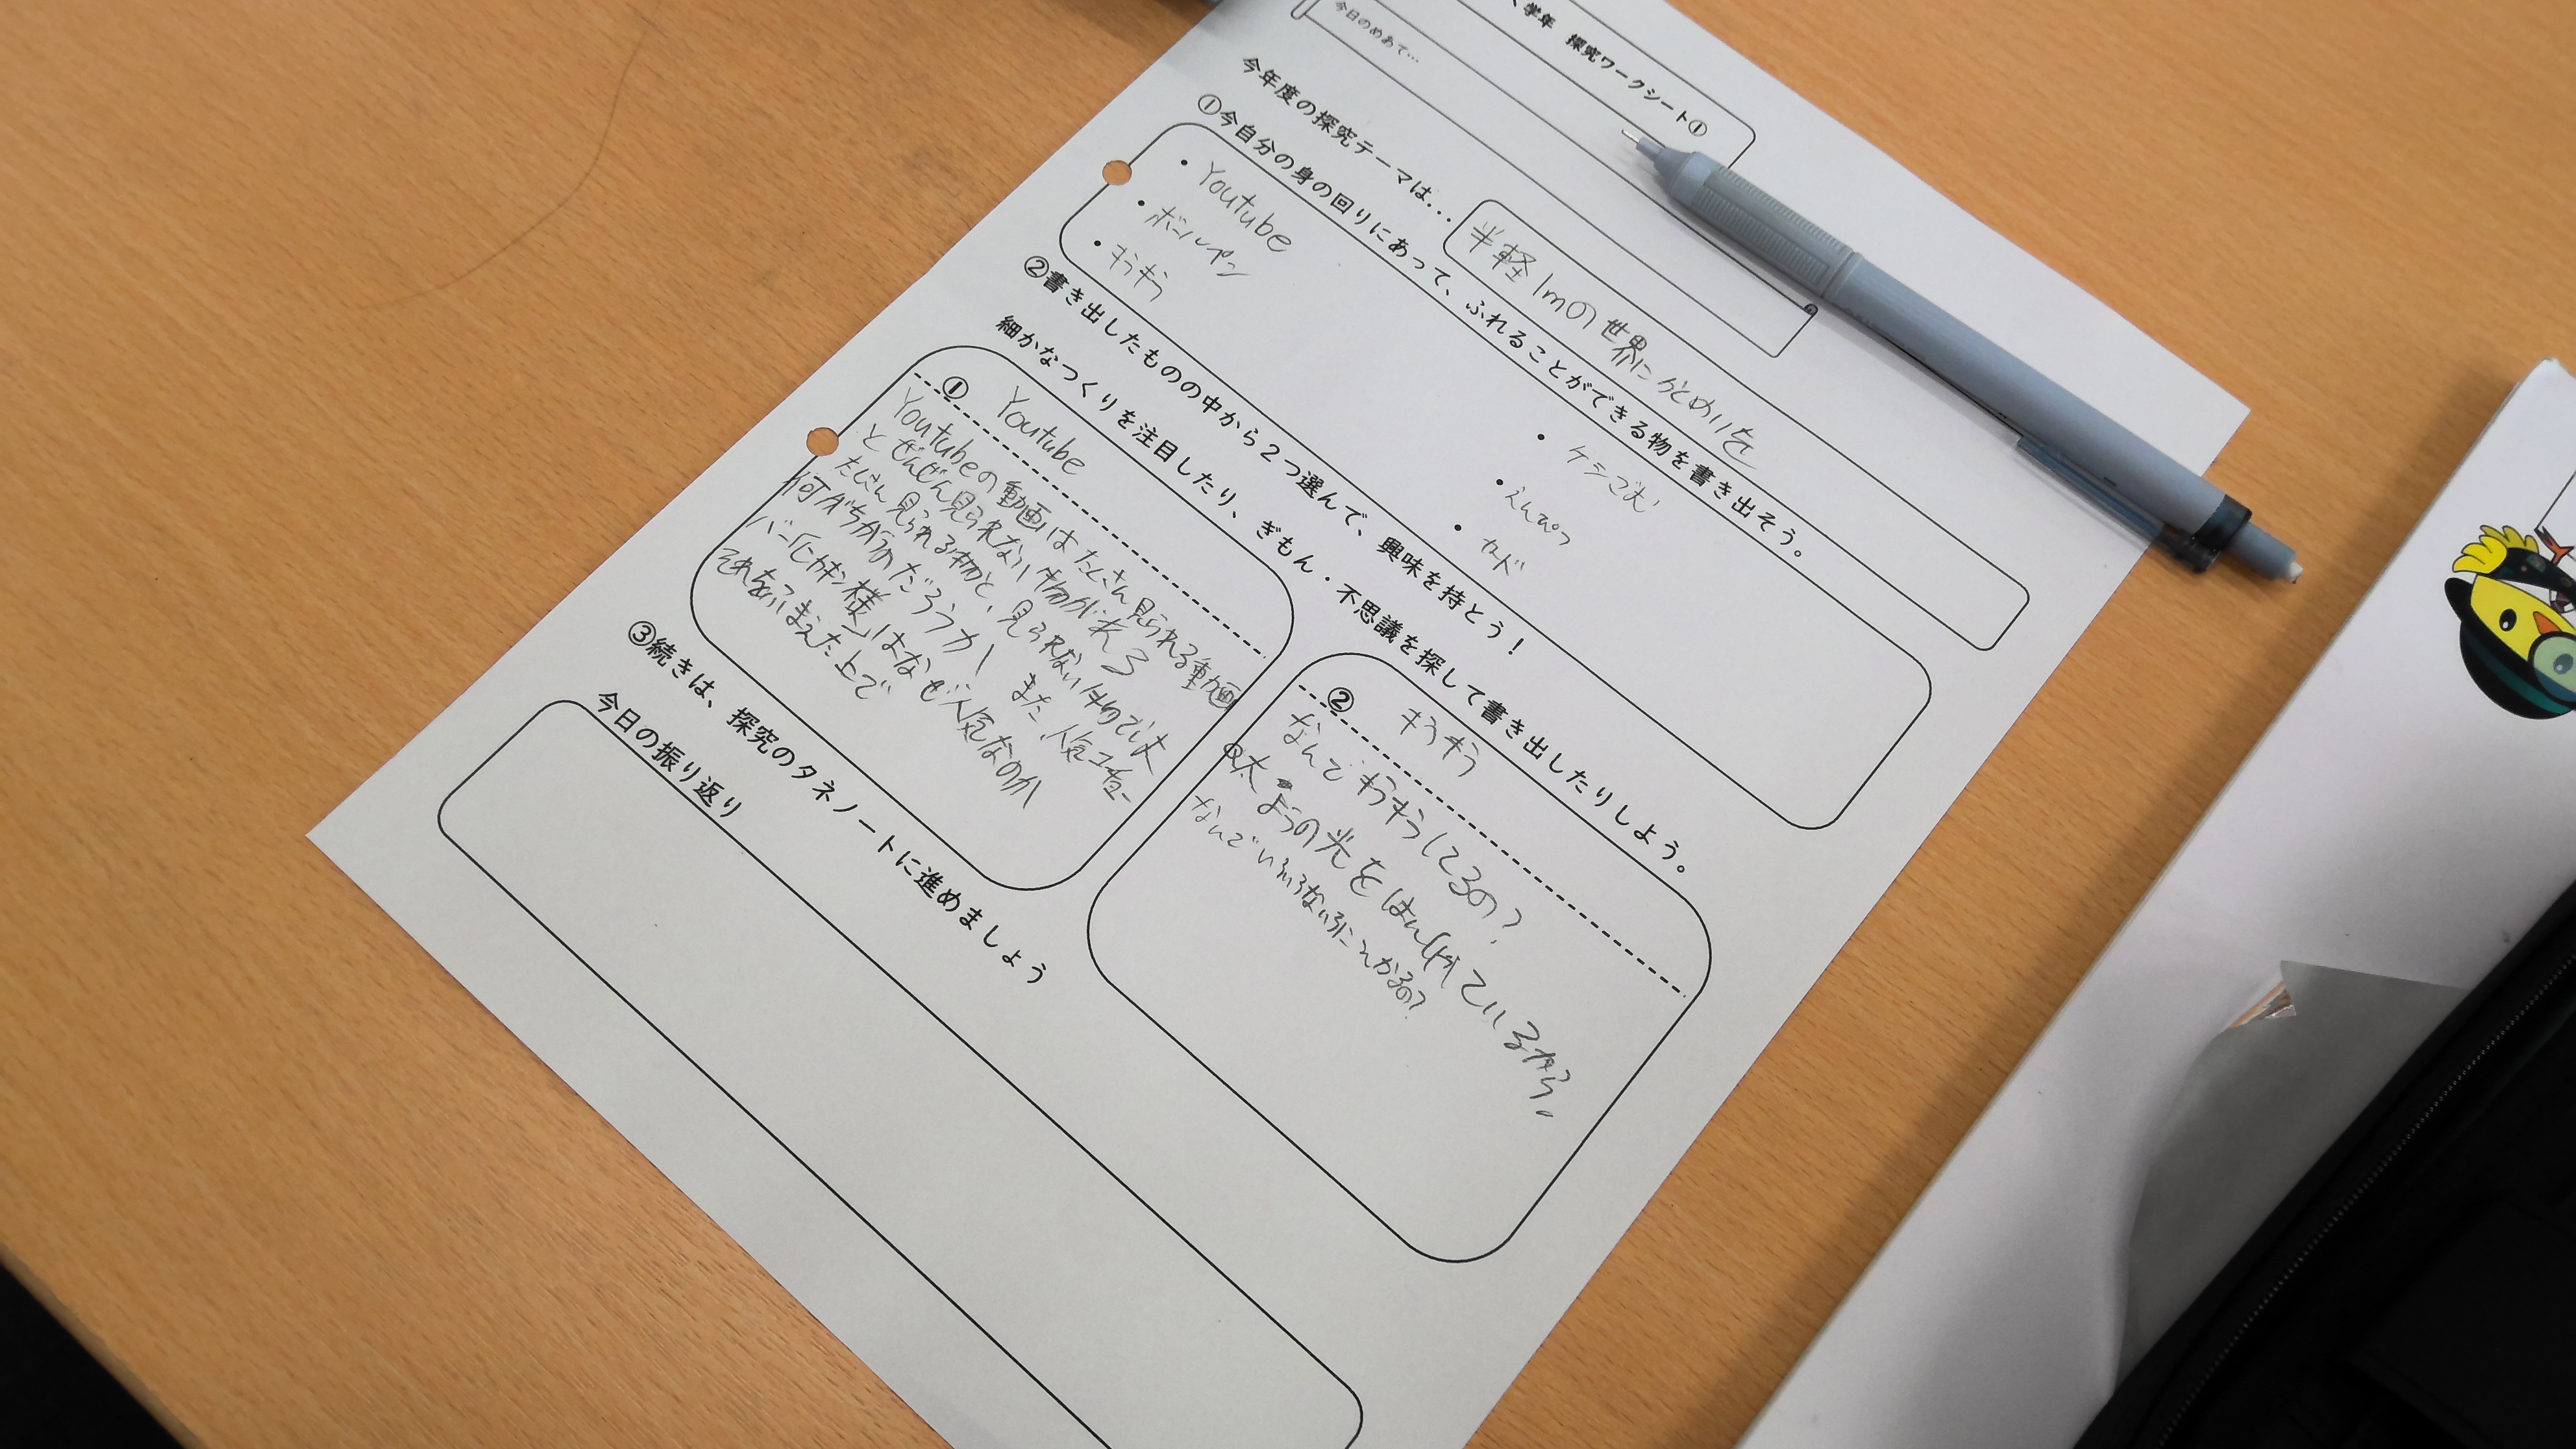 く学年 探究ワークシート①
今日のめあて…
今年度の探究テーマは…
半軽1mの世界に
①今自分の身の回りにあって、ふれることができる物を書き出そう。
・Youtube
・ボールペン
・キラキラ
・ケシごむ
・えんぴつ
・カード
②書き出したものの中から２つ選んで、興味を持とう！
細かなつくりを注目したり、ぎもん・不思議を探して書き出したりしよう。
① Youtube
Youtubeの動画はたくさん見られる動画
とぜんぜん見られない物が来る
たくさん見られる物と、見られない物では
何がちがうのだろうか また、人気ユーチュー
バー「ヒカキン様」はなぜ人気なのか
それをふまえた上で
② キラキラ
なんでキラキラしてるの？
太ようの光をはんしゃしているから。
なんでいろいろないろに
③続きは、探究のタネノートに進めましょう
今日の振り返り